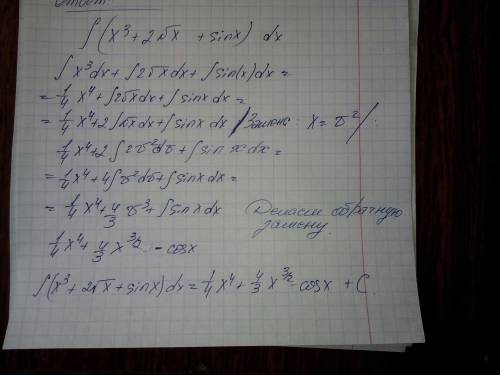 Ответ:
∫(x³ + 2√x + sinx) dx
∫x³dx + ∫2√x dx + ∫sin(x)dx =
= 1/4 x⁴ + ∫2√x dx + ∫sinx dx =
= 1/4 x⁴ + 2∫√x dx + ∫sinx dx / Замена: x = v² /
1/4 x⁴ + 2∫2v²dv + ∫sin x dx =
= 1/4 x⁴ + 4∫v²dv + ∫sinx dx =
= 1/4 x⁴ + 4/3 v³ + ∫sinx dx Делаем обратную
замену
1/4 x⁴ + 4/3 x^3/2 - cosx
∫(x³ + 2√x + sinx) dx = 1/4 x⁴ + 4/3 x^3/2 - cosx + C